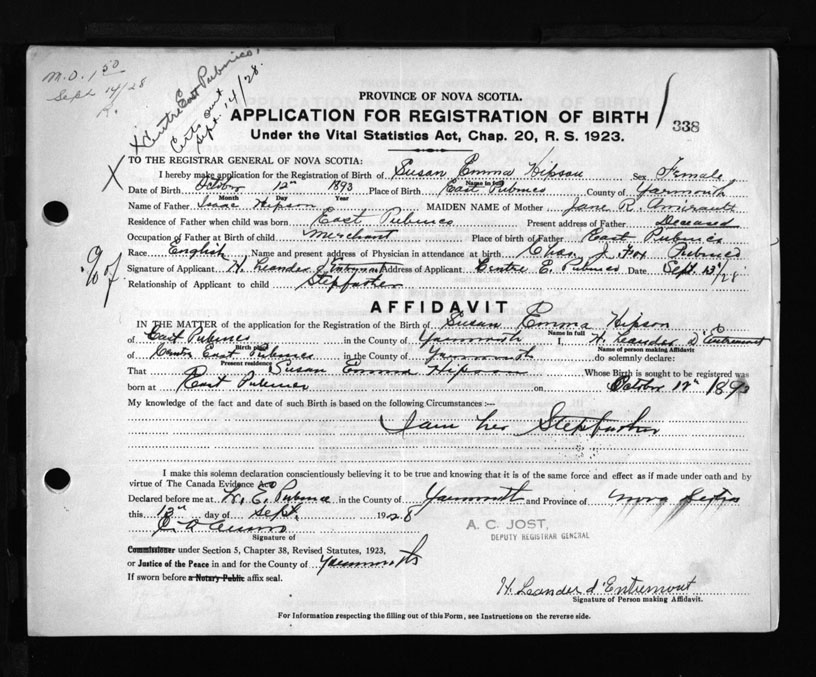 M.O. 1 50
Sept 14/28
X Centre East Pubnico,
Certs sent
Sept. 14/28.
PROVINCE OF NOVA SCOTIA.
APPLICATION FOR REGISTRATION OF BIRTH
338
Under the Vital Statistics Act, Chap. 20, R. S. 1923.
X
TO THE REGISTRAR GENERAL OF NOVA SCOTIA:
I hereby make application for the Registration of Birth of Susan Emma Hipson Sex Female
Name in full
Date of Birth October 12th 1893 Place of Birth East Pubnico County of Yarmouth
Month Day Year
Name of Father Isaac Hipson MAIDEN NAME of Mother Jane R. Amirault
Residence of Father when child was born East Pubnico Present address of Father Deceased
Occupation of Father at Birth of child Merchant Place of birth of Father East Pubnico
Race English Name and present address of Physician in attendance at birth Chas. J. Fox Pubnico
% of
Signature of Applicant H. Leander d'Entremont Address of Applicant Centre E. Pubnico Date Sept. 13/28
Relationship of Applicant to child Stepfather
AFFIDAVIT
IN THE MATTER of the application for the Registration of the Birth of Susan Emma Hipson
Name in full
of East Pubnico in the County of Yarmouth I, H. Leander D'Entremont
Birth place Name of person making Affidavit
of Centre East Pubnico in the County of Yarmouth do solemnly declare:
Present residence
That Susan Emma Hipson Whose Birth is sought to be registered was
born at East Pubnico on October 12th 1893
My knowledge of the fact and date of such Birth is based on the following Circumstances :—
I am her Stepfather
I make this solemn declaration conscientiously believing it to be true and knowing that it is of the same force and effect as if made under oath and by
virtue of The Canada Evidence Act
Declared before me at W. E. Pubnico in the County of Yarmouth and Province of Nova Scotia
this 13th day of Sept. 1928
A. C. JOST,
DEPUTY REGISTRAR GENERAL
Signature of
Commissioner under Section 5, Chapter 38, Revised Statutes, 1923,
or Justice of the Peace in and for the County of Yarmouth
If sworn before a Notary Public affix seal.
H. Leander d'Entremont
Signature of Person making Affidavit.
For Information respecting the filling out of this Form, see Instructions on the reverse side.